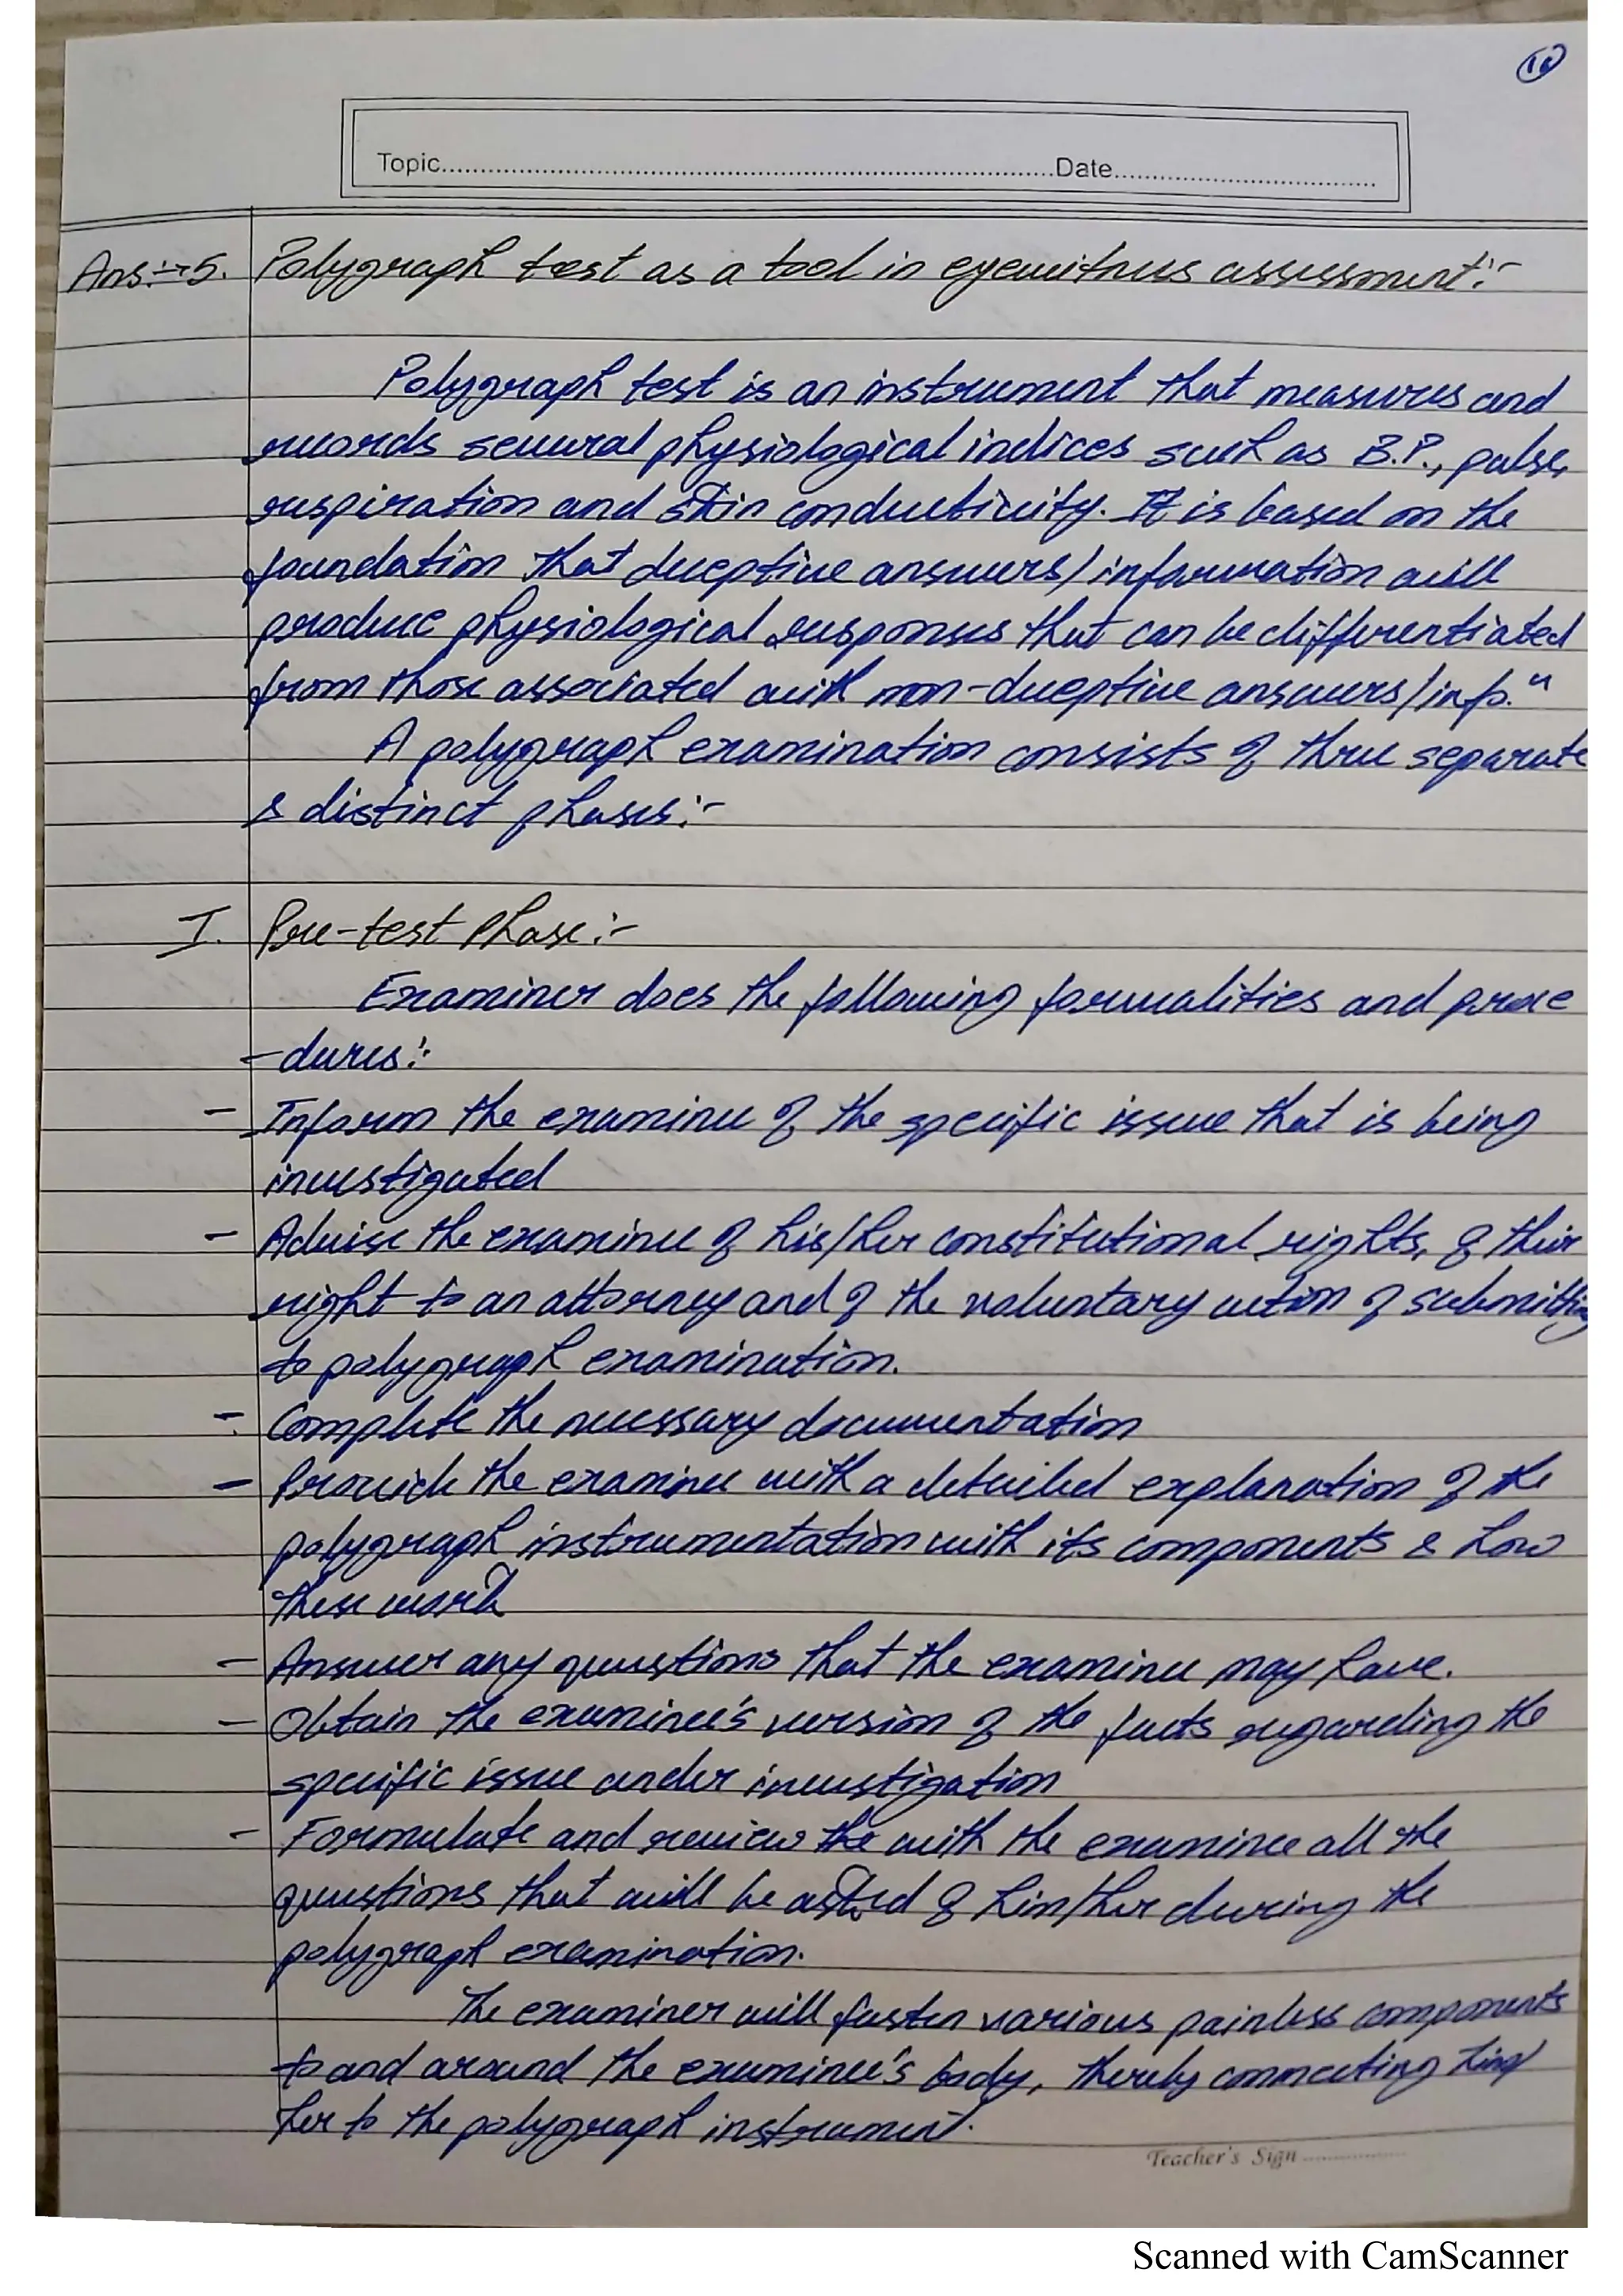 10
Topic.....................Date.....................
Ans:→5. Polygraph test as a tool in eyewitness assessment:-
Polygraph test is an instrument that measures and
records several physiological indices such as B.P., pulse,
respiration and skin conductivity. It is based on the
foundation that deceptive answers/information will
produce physiological responses that can be differentiated
from those associated with non-deceptive answers/info."
A polygraph examination consists of three separate
& distinct phases:-
I. Pre-test Phase:-
Examiner does the following formalities and proce
-dures:
- Inform the examinee of the specific issue that is being
investigated
- Advise the examinee of his/her constitutional rights, of their
right to an attorney and of the voluntary action of submitting
to polygraph examination.
- Complete the necessary documentation
- Provide the examinee with a detailed explanation of the
polygraph instrumentation with its components & how
these work
- Answer any questions that the examinee may have.
- Obtain the examinee's version of the facts regarding the
specific issue under investigation
- Formulate and review the with the examinee all the
questions that will be asked of him/her during the
polygraph examination.
The examiner will fasten various painless components
to and around the examinee's body, thereby connecting him/
her to the polygraph instrument.
Teacher's Sign ..............
Scanned with CamScanner